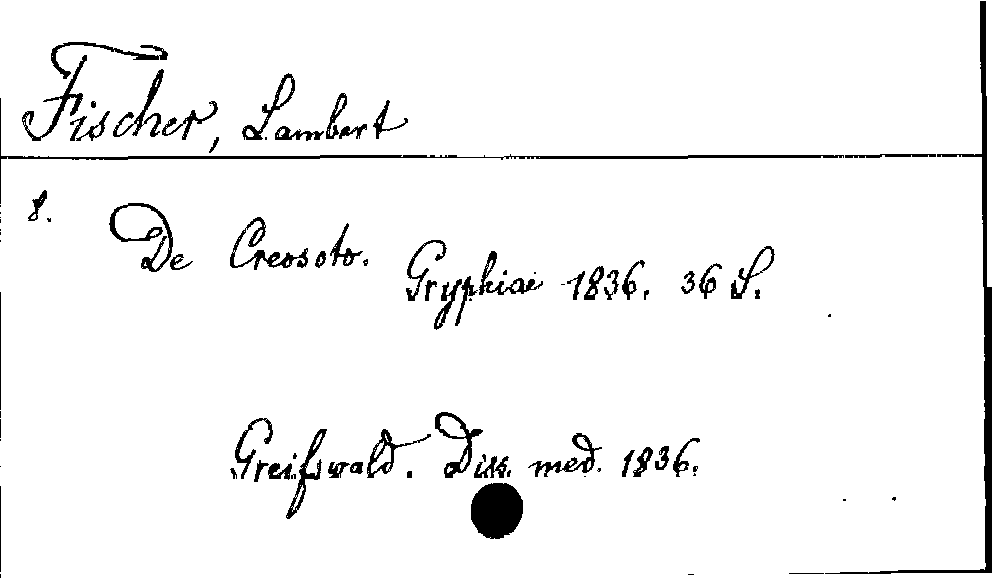 Fischer, Lambert
8.
De Creosoto. Gryphiae 1836. 36 S.
Greifswald. Diss. med. 1836.